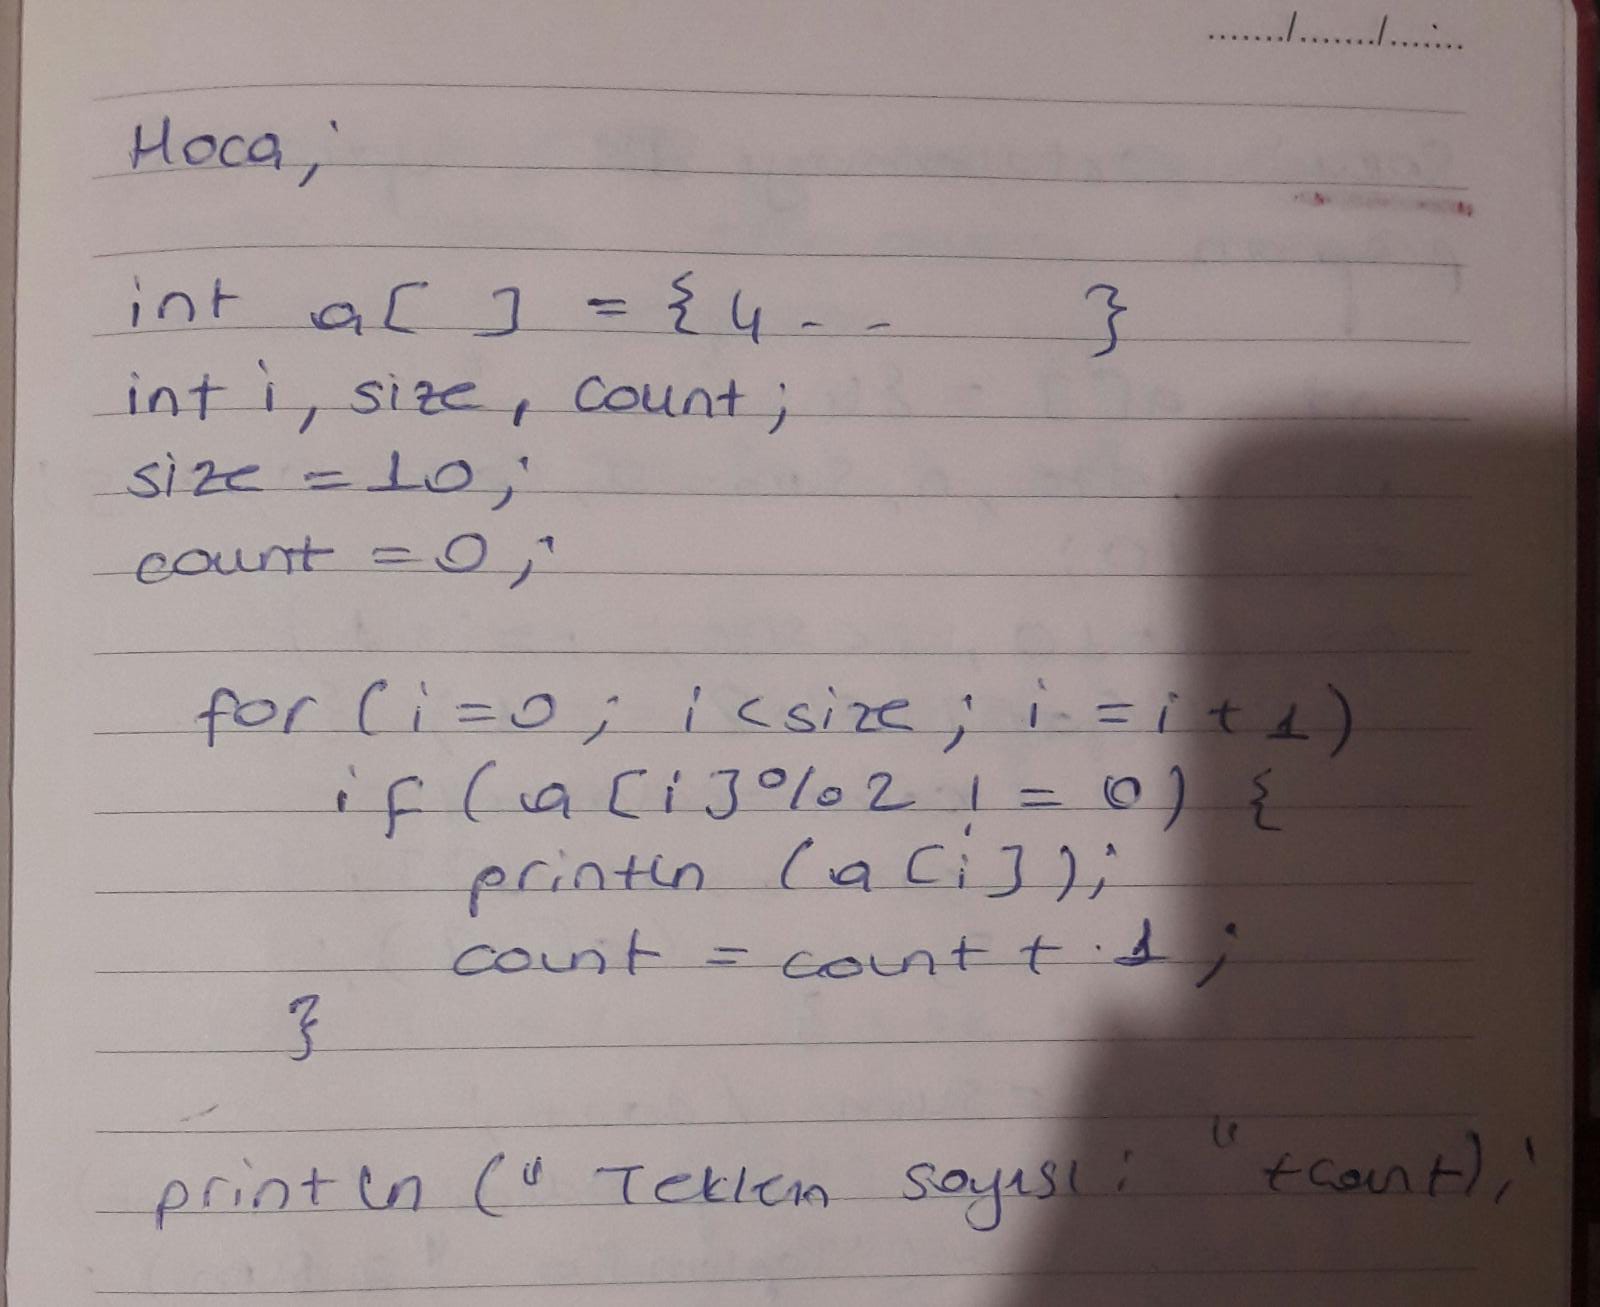 ......./......./.......
Hoca;
int a[ ] = {4 - - }
int i, size, count;
size = 10;
count = 0;
for (i=0; i<size; i=i+1)
if (a[i]%2 != 0) {
println (a[i]);
count = count + 1;
}
println (" Teklerin sayısı: " +count);